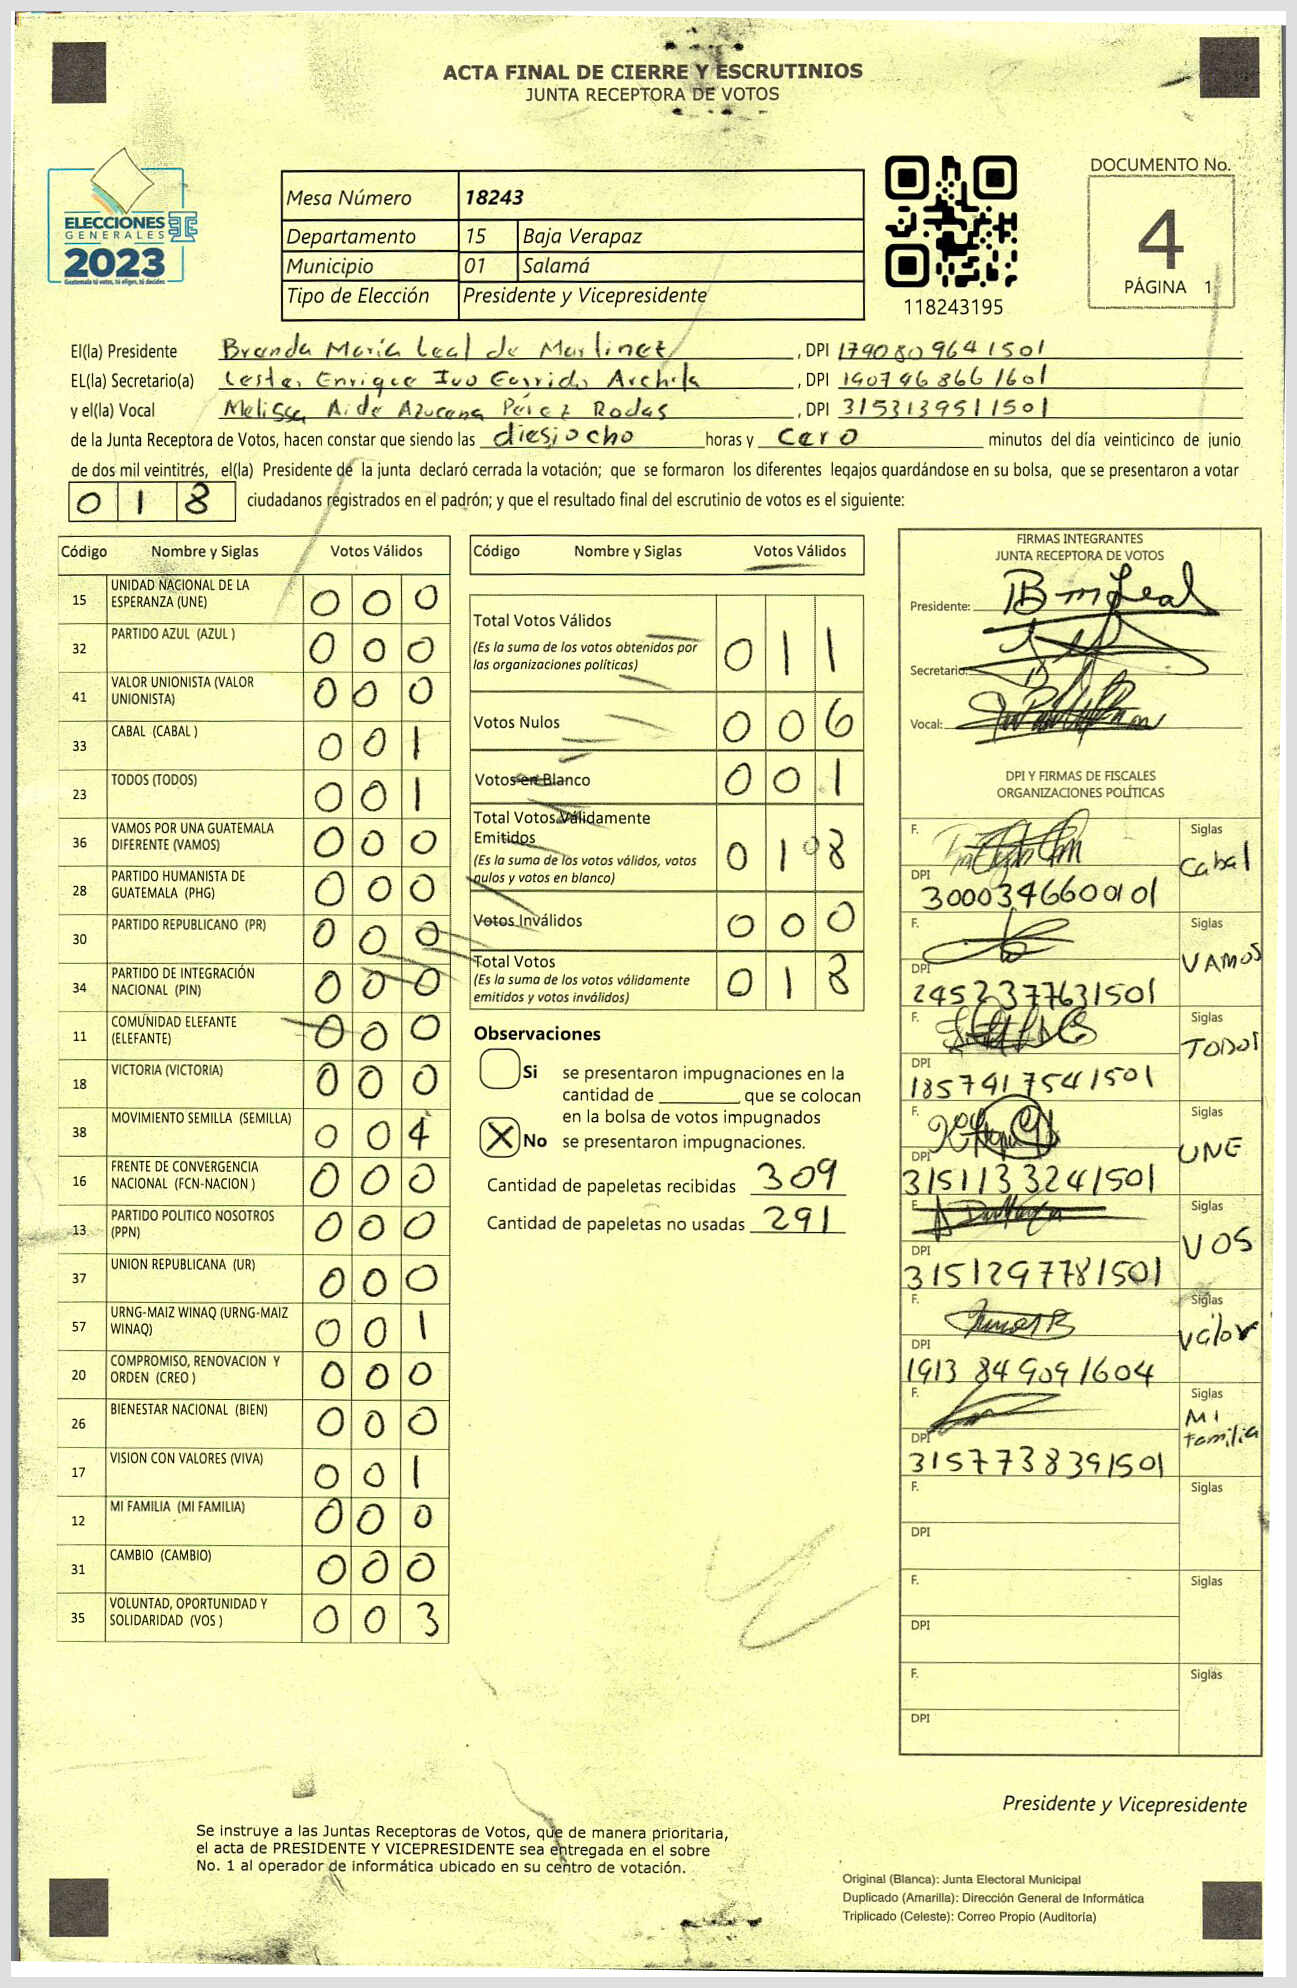 ACTA FINAL DE CIERRE Y ESCRUTINIOS
JUNTA RECEPTORA DE VOTOS
ELECCIONES
GENERALES
2023
Guatemala tú votas, tú eliges, tú decides
Mesa Número 18243
Departamento 15 Baja Verapaz
Municipio 01 Salamá
Tipo de Elección Presidente y Vicepresidente
118243195
DOCUMENTO No.
4
PÁGINA 1
El(la) Presidente Brenda María Leal de Martinez, DPI 1790809641501
EL(la) Secretario(a) Lester Enrique Ivo Garrido Archila, DPI 1907468661601
y el(la) Vocal Melissa Aide Azucena Pérez Rodas, DPI 3153139511501
de la Junta Receptora de Votos, hacen constar que siendo las diesiocho horas y cero minutos del día veinticinco de junio
de dos mil veintitrés, el(la) Presidente de la junta declaró cerrada la votación; que se formaron los diferentes legajos guardándose en su bolsa, que se presentaron a votar
018 ciudadanos registrados en el padrón; y que el resultado final del escrutinio de votos es el siguiente:
Código Nombre y Siglas Votos Válidos
15 UNIDAD NACIONAL DE LA ESPERANZA (UNE) 0 0 0
32 PARTIDO AZUL (AZUL ) 0 0 0
41 VALOR UNIONISTA (VALOR UNIONISTA) 0 0 0
33 CABAL (CABAL ) 0 0 1
23 TODOS (TODOS) 0 0 1
36 VAMOS POR UNA GUATEMALA DIFERENTE (VAMOS) 0 0 0
28 PARTIDO HUMANISTA DE GUATEMALA (PHG) 0 0 0
30 PARTIDO REPUBLICANO (PR) 0 0 0
34 PARTIDO DE INTEGRACIÓN NACIONAL (PIN) 0 0 0
11 COMUNIDAD ELEFANTE (ELEFANTE) 0 0 0
18 VICTORIA (VICTORIA) 0 0 0
38 MOVIMIENTO SEMILLA (SEMILLA) 0 0 4
16 FRENTE DE CONVERGENCIA NACIONAL (FCN-NACION ) 0 0 0
13 PARTIDO POLITICO NOSOTROS (PPN) 0 0 0
37 UNION REPUBLICANA (UR) 0 0 0
57 URNG-MAIZ WINAQ (URNG-MAIZ WINAQ) 0 0 1
20 COMPROMISO, RENOVACION Y ORDEN (CREO ) 0 0 0
26 BIENESTAR NACIONAL (BIEN) 0 0 0
17 VISION CON VALORES (VIVA) 0 0 1
12 MI FAMILIA (MI FAMILIA) 0 0 0
31 CAMBIO (CAMBIO) 0 0 0
35 VOLUNTAD, OPORTUNIDAD Y SOLIDARIDAD (VOS ) 0 0 3
Código Nombre y Siglas Votos Válidos
Total Votos Válidos 0 1 1
(Es la suma de los votos obtenidos por
las organizaciones políticas)
Votos Nulos 0 0 6
Votos en Blanco 0 0 1
Total Votos Válidamente
Emitidos 0 1 8
(Es la suma de los votos válidos, votos
nulos y votos en blanco)
Votos Inválidos 0 0 0
Total Votos 0 1 8
(Es la suma de los votos válidamente
emitidos y votos inválidos)
Observaciones
Si se presentaron impugnaciones en la
cantidad de ________ que se colocan
en la bolsa de votos impugnados
X No se presentaron impugnaciones.
Cantidad de papeletas recibidas 309
Cantidad de papeletas no usadas 291
FIRMAS INTEGRANTES
JUNTA RECEPTORA DE VOTOS
Presidente: BmLeal
Secretario:
Vocal:
DPI Y FIRMAS DE FISCALES
ORGANIZACIONES POLÍTICAS
F. Siglas Cabal
DPI 3000346600101
F. Siglas VAMOS
DPI 2452377631501
F. Siglas TODOS
DPI 1857417541501
F. Siglas UNE
DPI 3151133241501
F. Siglas VOS
DPI 3151297781501
F. Siglas Valor
DPI 1913849091604
F. Siglas Mi familia
DPI 3157738391501
F. Siglas
DPI
F. Siglas
DPI
F. Siglas
DPI
Presidente y Vicepresidente
Se instruye a las Juntas Receptoras de Votos, que de manera prioritaria,
el acta de PRESIDENTE Y VICEPRESIDENTE sea entregada en el sobre
No. 1 al operador de informática ubicado en su centro de votación.
Original (Blanca): Junta Electoral Municipal
Duplicado (Amarilla): Dirección General de Informática
Triplicado (Celeste): Correo Propio (Auditoría)